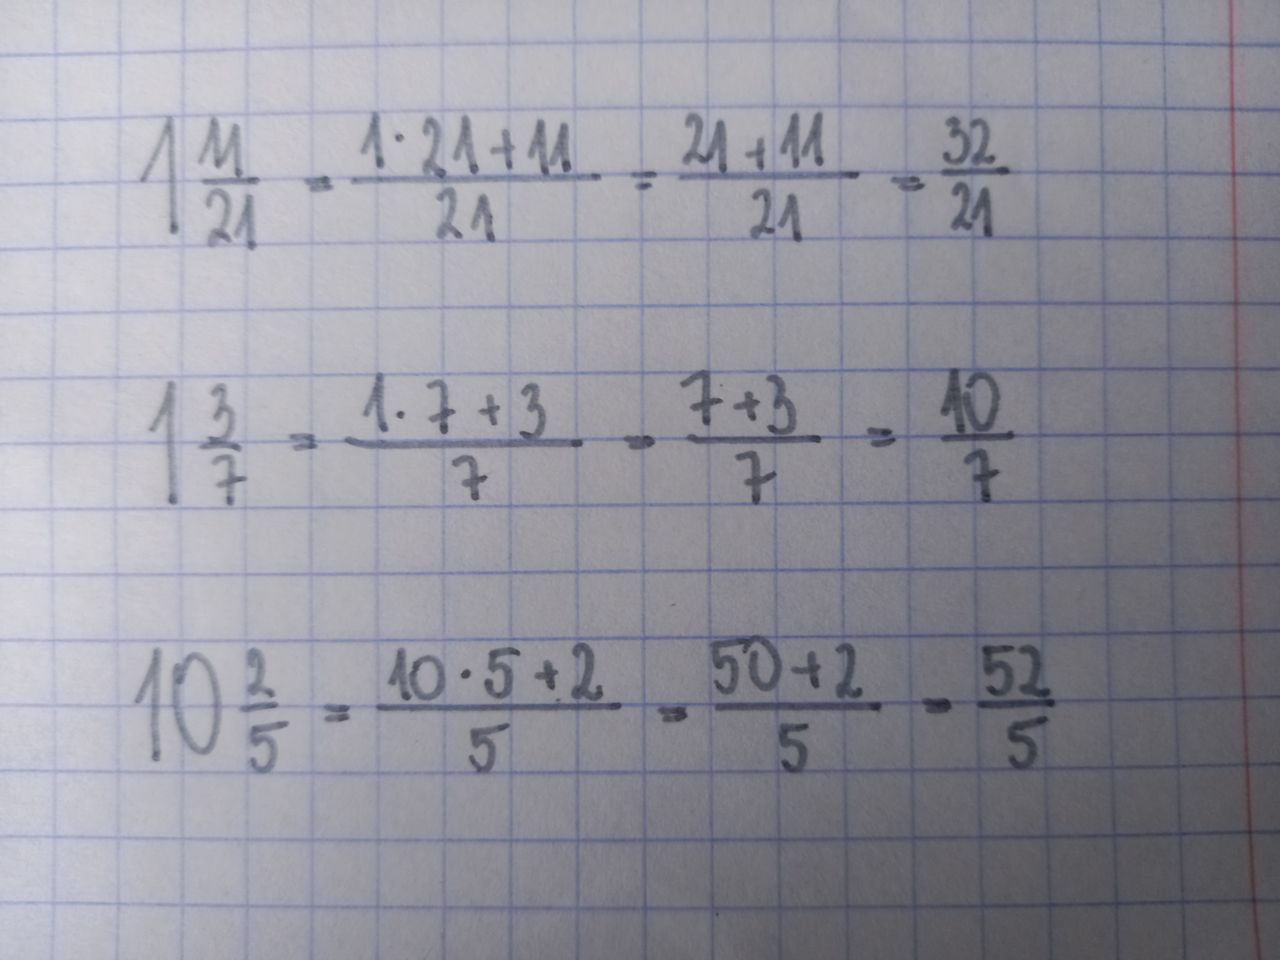 1 11/21 = (1·21+11)/21 = (21+11)/21 = 32/21
1 3/7 = (1·7+3)/7 = (7+3)/7 = 10/7
10 2/5 = (10·5+2)/5 = (50+2)/5 = 52/5